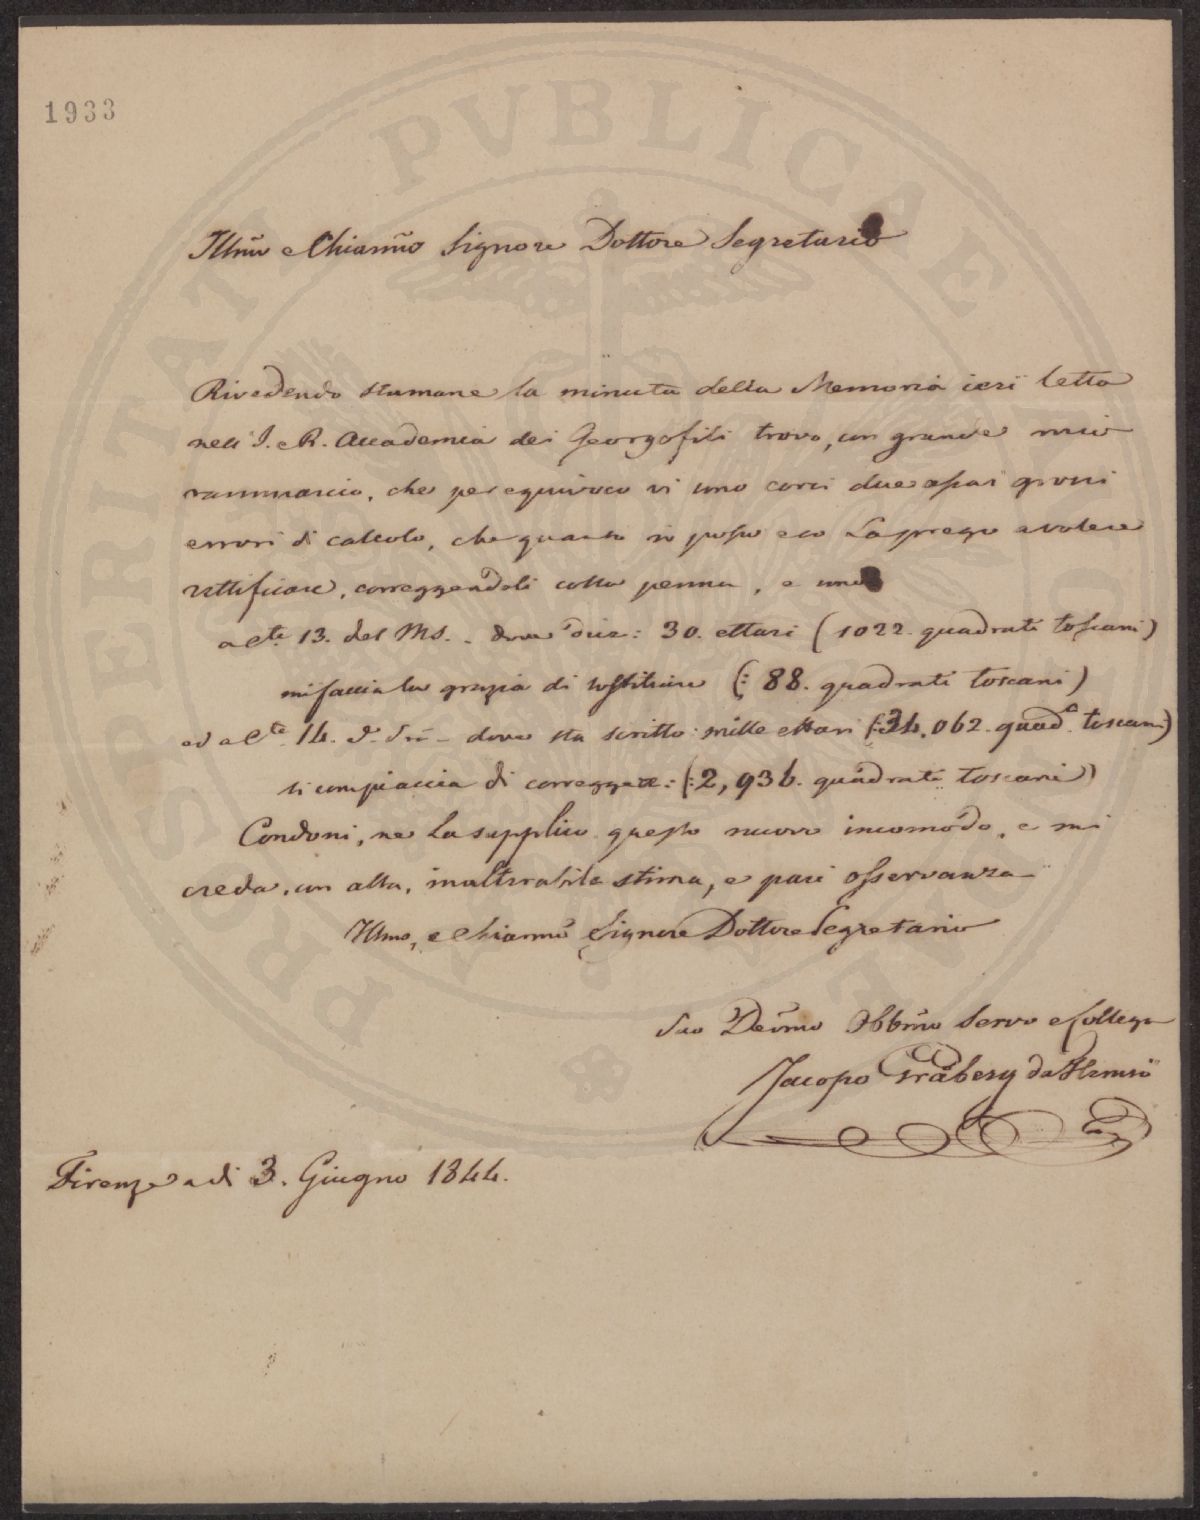 1933
Illmo e Chiarmo Signore Dottore Segretario
Rivedendo stamane la minuta della Memoria ieri letta
nell' I. e R. Accademia dei Georgofili trovo, con grande mio
rammarico, che per equivoco vi sono corsi due assai grossi
errori di calcolo, che quanto si posso e so La prego a volere
rettificare, correggendoli colla penna, e sono
a Cte. 13. del Ms. dove dice: 30. ettari (1022. quadrati toscani)
mi faccia la grazia di sostituire (: 88. quadrati toscani)
ed a Cte. 14. dove sta scritto: mille ettari (: 34,062. quadi. toscani)
si compiaccia di correggere: (: 2,936. quadrati toscani)
Condoni, ne La supplico questo nuovo incomodo, e mi
creda, con alta, inalterabile stima, e pari osservanza
Illmo, e Chiarmo Signore Dottore Segretario
Suo Devmo Obbmo Servo e Collega
Jacopo Gråberg da Hemsö
Firenze adi 3. Giugno 1844.
PERITAT PVBLICAE